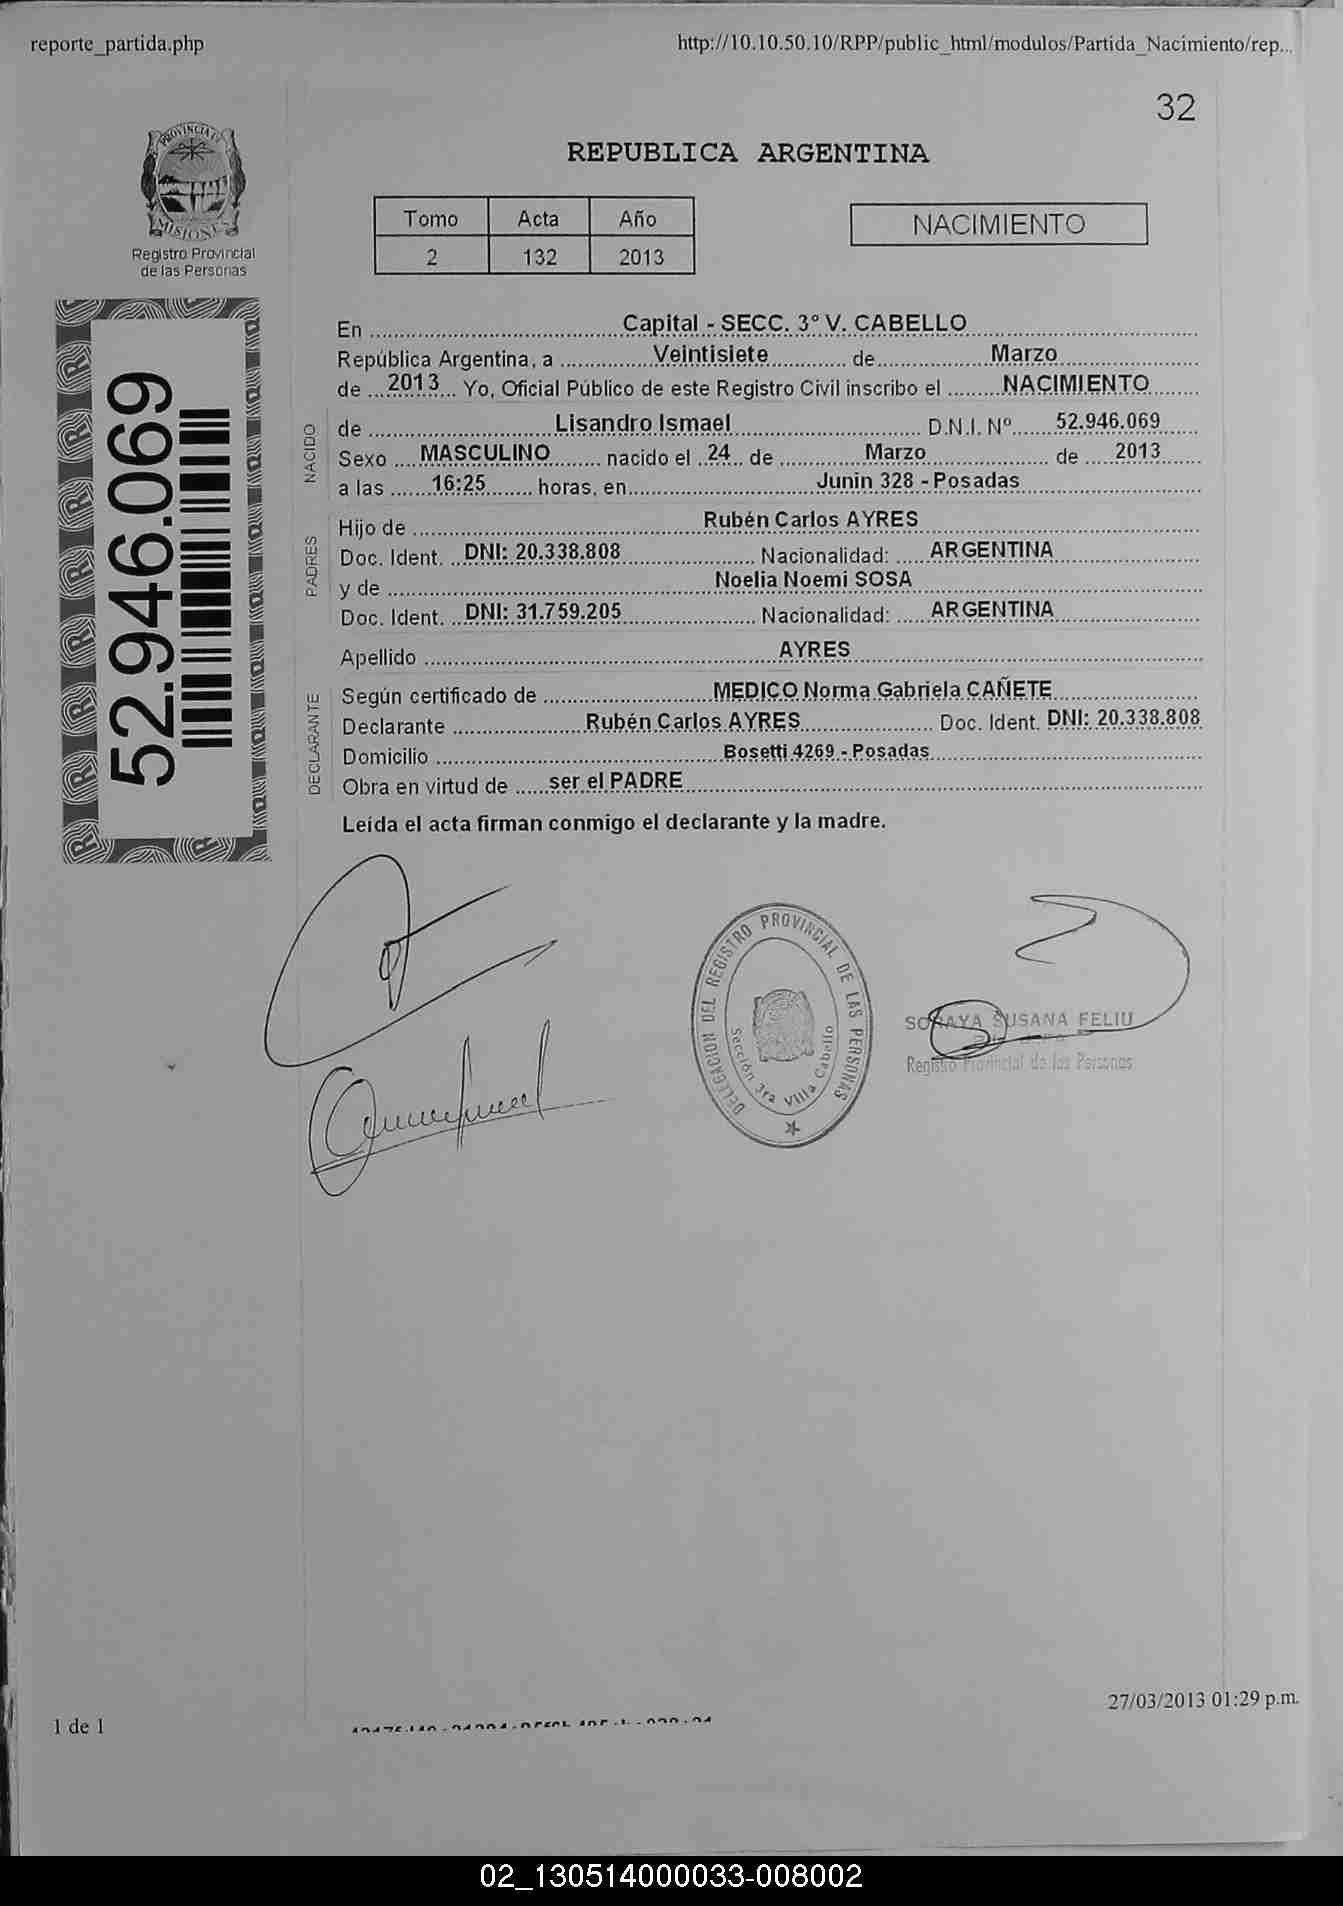 reporte_partida.php
http://10.10.50.10/RPP/public_html/modulos/Partida_Nacimiento/rep...
32
PROVINCIA DE
MISIONES
Registro Provincial
de las Personas
REPUBLICA ARGENTINA
Tomo Acta Año
2 132 2013
NACIMIENTO
52.946.069
En Capital - SECC. 3° V. CABELLO
República Argentina, a Veintisiete de Marzo
de 2013 Yo, Oficial Público de este Registro Civil inscribo el NACIMIENTO
NACIDO
de Lisandro Ismael D.N.I. Nº 52.946.069
Sexo MASCULINO nacido el 24 de Marzo de 2013
a las 16:25 horas, en Junin 328 - Posadas
PADRES
Hijo de Rubén Carlos AYRES
Doc. Ident. DNI: 20.338.808 Nacionalidad: ARGENTINA
y de Noelia Noemi SOSA
Doc. Ident. DNI: 31.759.205 Nacionalidad: ARGENTINA
Apellido AYRES
DECLARANTE
Según certificado de MEDICO Norma Gabriela CAÑETE
Declarante Rubén Carlos AYRES Doc. Ident. DNI: 20.338.808
Domicilio Bosetti 4269 - Posadas
Obra en virtud de ser el PADRE
Leída el acta firman conmigo el declarante y la madre.
DELEGACION DEL REGISTRO PROVINCIAL DE LAS PERSONAS
Sección 3ra Villa Cabello
SORAYA SUSANA FELIU
Registro Provincial de las Personas
27/03/2013 01:29 p.m.
1 de 1
02_130514000033-008002